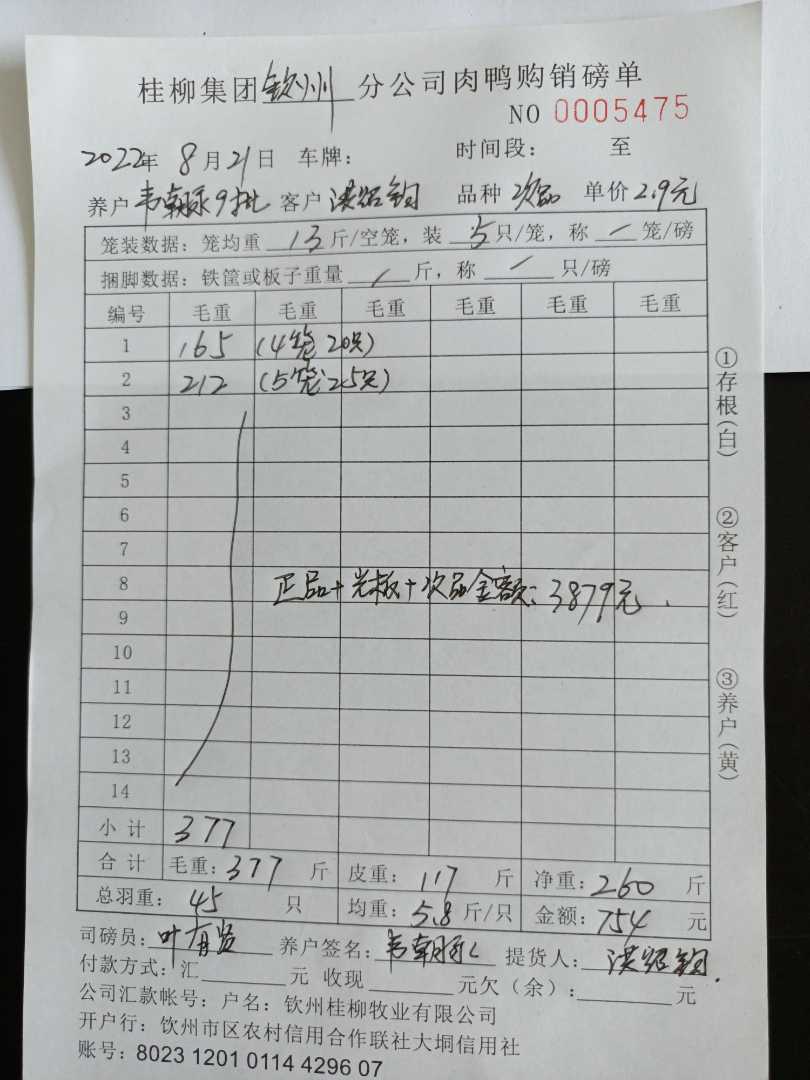 桂柳集团钦州分公司肉鸭购销磅单
NO 0005475
2022年 8月21日 车牌： 时间段： 至
养户 韦朝 9批 客户 洪绍钧 品种 次品 单价 2.9元
笼装数据：笼均重 13 斤/空笼，装 5 只/笼，称 / 笼/磅
捆脚数据：铁筐或板子重量 / 斤，称 / 只/磅
编号 毛重 毛重 毛重 毛重 毛重 毛重
1 165 (4笼 20只)
2 212 (5笼 25只)
3
4
5
6
7
8 正品+光板+次品金额：3879元.
9
10
11
12
13
14
小计 377
合计 毛重：377 斤 皮重：117 斤 净重：260 斤
总羽重：45 只 均重：5.8 斤/只 金额：754 元
司磅员：叶有 养户签名：韦朝 提货人：洪绍钧.
付款方式：汇 元 收现 元欠（余）： 元
公司汇款帐号：户名：钦州桂柳牧业有限公司
开户行：钦州市区农村信用合作联社大垌信用社
账号：8023 1201 0114 4296 07
①存根(白)
②客户(红)
③养户(黄)